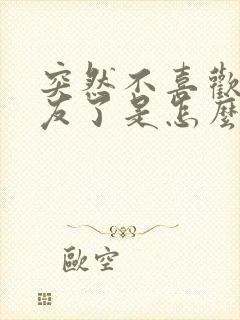 突然不喜歡
友了是怎麼
歐空